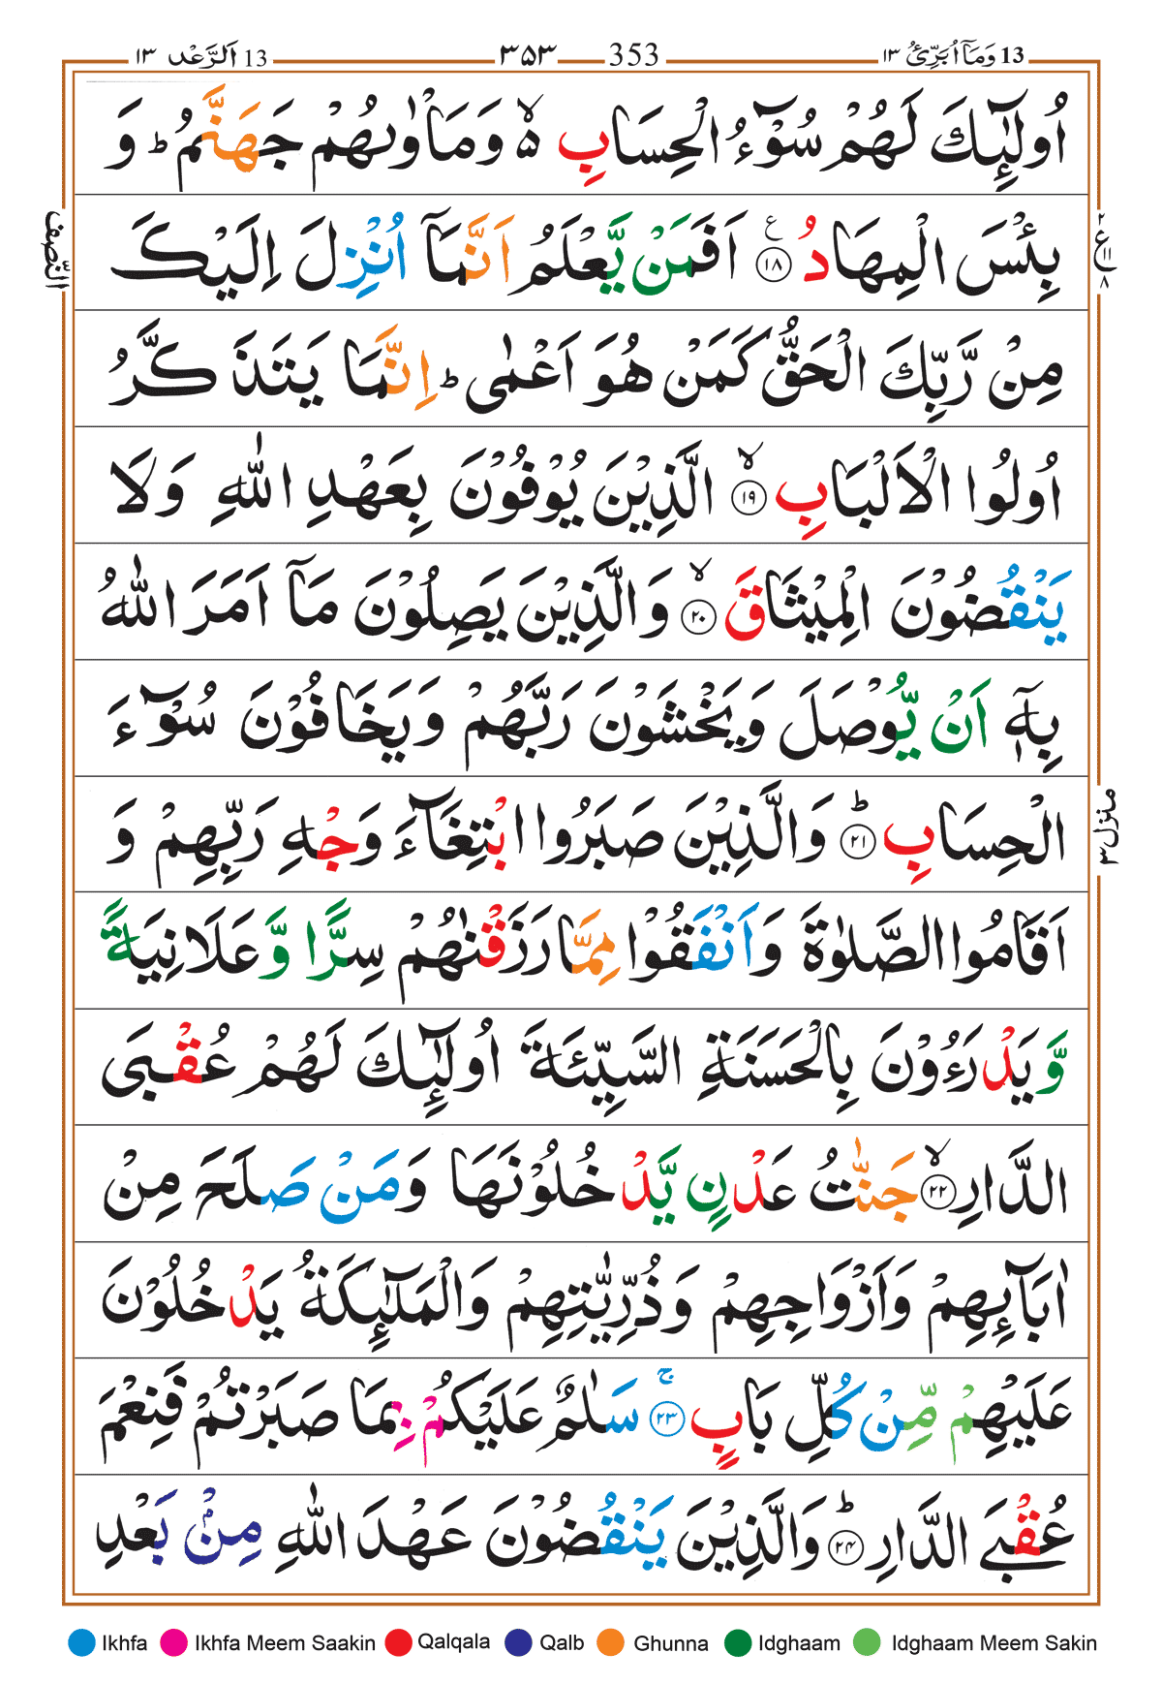 13 اَلرَّعْد ١٣
٣٥٣ 353
13 وَمَآ اُبَرِّئُ ١٣
اُولٰٓئِكَ لَهُمْ سُوْٓءُ الْحِسَابِ ۙ۵ وَمَاْوٰىهُمْ جَهَنَّمُ ؕ وَ
بِئْسَ الْمِهَادُ ۝١٨ ع اَفَمَنْ يَّعْلَمُ اَنَّمَآ اُنْزِلَ اِلَيْكَ
مِنْ رَّبِّكَ الْحَقُّ كَمَنْ هُوَ اَعْمٰى ؕ اِنَّمَا يَتَذَكَّرُ
اُولُوا الْاَلْبَابِ ۙ۝١٩ الَّذِيْنَ يُوْفُوْنَ بِعَهْدِ اللّٰهِ وَلَا
يَنْقُضُوْنَ الْمِيْثَاقَ ۙ۝٢٠ وَالَّذِيْنَ يَصِلُوْنَ مَآ اَمَرَ اللّٰهُ
بِهٖٓ اَنْ يُّوْصَلَ وَيَخْشَوْنَ رَبَّهُمْ وَيَخَافُوْنَ سُوْٓءَ
الْحِسَابِ ؕ۝٢١ وَالَّذِيْنَ صَبَرُوا ابْتِغَآءَ وَجْهِ رَبِّهِمْ وَ
اَقَامُوا الصَّلٰوةَ وَاَنْفَقُوْا مِمَّا رَزَقْنٰهُمْ سِرًّا وَّعَلَانِيَةً
وَّيَدْرَءُوْنَ بِالْحَسَنَةِ السَّيِّئَةَ اُولٰٓئِكَ لَهُمْ عُقْبَى
الدَّارِ ۙ۝٢٢ جَنّٰتُ عَدْنٍ يَّدْخُلُوْنَهَا وَمَنْ صَلَحَ مِنْ
اٰبَآئِهِمْ وَاَزْوَاجِهِمْ وَذُرِّيّٰتِهِمْ وَالْمَلٰٓئِكَةُ يَدْخُلُوْنَ
عَلَيْهِمْ مِّنْ كُلِّ بَابٍ ۚ۝٢٣ سَلٰمٌ عَلَيْكُمْ بِمَا صَبَرْتُمْ فَنِعْمَ
عُقْبَى الدَّارِ ؕ۝٢٤ وَالَّذِيْنَ يَنْقُضُوْنَ عَهْدَ اللّٰهِ مِنْۢ بَعْدِ
النّصف
منزل ٣
Ikhfa Ikhfa Meem Saakin Qalqala Qalb Ghunna Idghaam Idghaam Meem Sakin